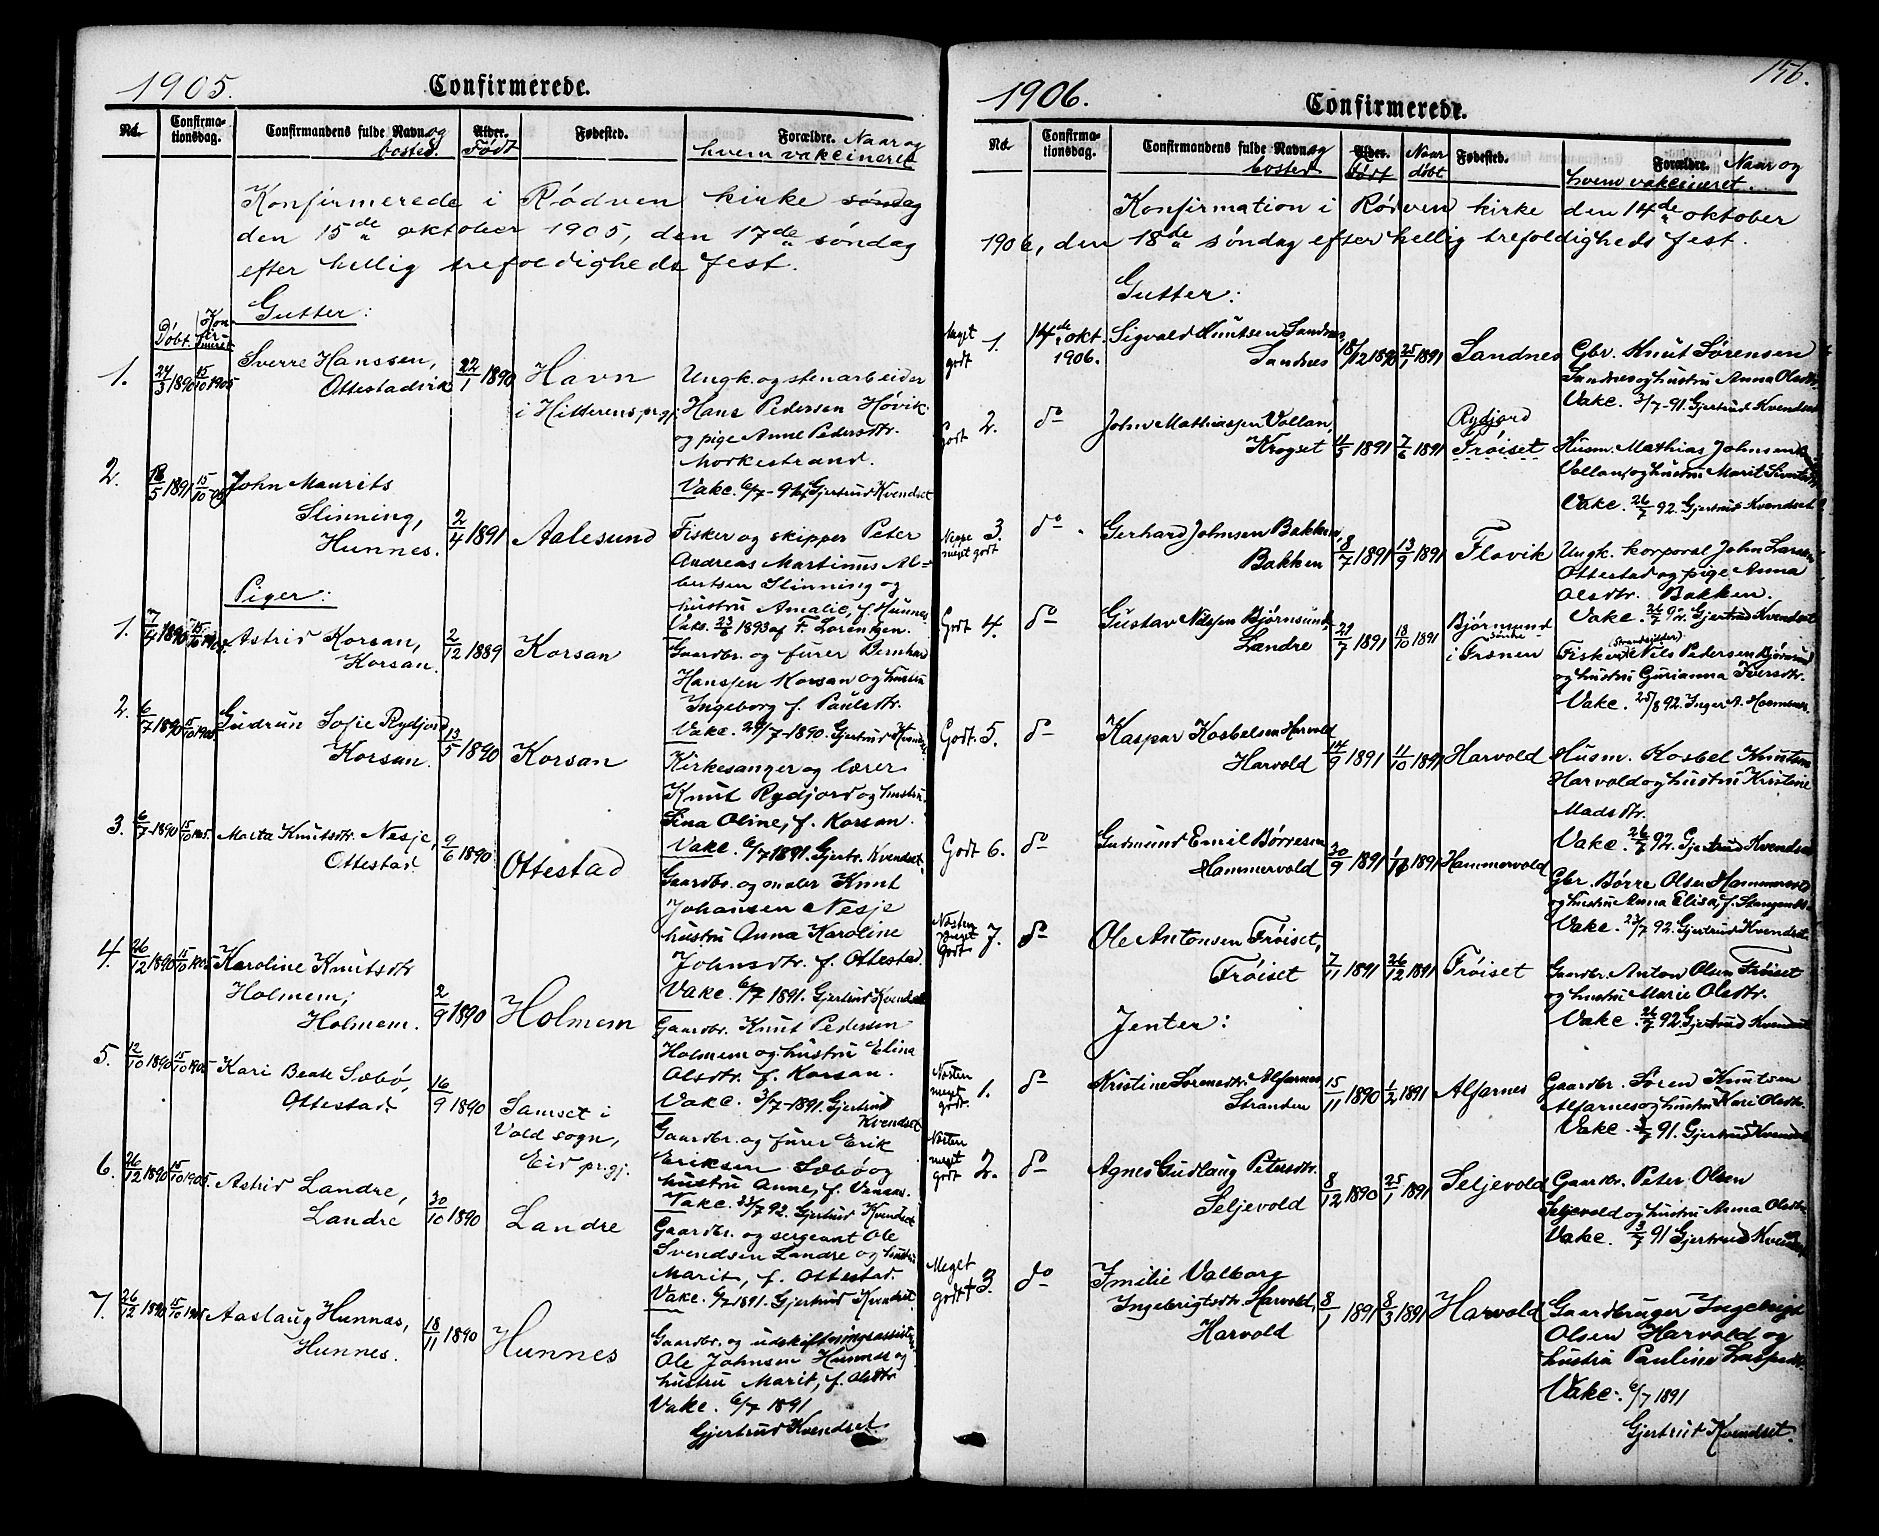 1905.
Confirmerede.
No.
Confirma-
tionsdag.
Confirmandens fulde Navn og
bosted.
Alder.
Født
Fødested.
Forældre. Naar og
hvem vakcineret
Konfirmerede i Rødven kirke søndag
den 15de oktober 1905, den 17de søndag
efter hellig trefoldigheds fest.
Gutter:
Døbt. Kon-
fir-
meret
1. 24/3 1890 15/10 1905 Sverre Hanssen,
Ottestadvik 22/1 1890 Havn
i Hitterens prgj.
Ungk. og stenarbeider
Hans Pedersen Høvik
og pige Anne Pedersdtr.
Morkestrand.
Vakc. 6/7 - 91 Gjertrud Kvendset
2. 18/5 1891 15/10 05 John Maurits
Slinning,
Hunnes. 2/4 1891 Aalesund
Fisker og skipper Peter
Andreas Martinus Al-
bertsen Slinning og
hustru Amalie, f. Hunnes
Vaks. 23/6 1893 af F. Lorentzen.
Piger:
1. 7/4 1890 15/10 1905 Astrid Korsan,
Korsan. 2/12 1889 Korsan
Gaardbr. og furer Bernhard
Hanssen Korsan og hustru
Ingeborg f. Paulsdtr.
Vakc. 7-1890. Gjertrud Kvendset
2. 6/7 1890 15/10 1905 Gudrun Sofie Rydjord
Korsan. 13/5 1890 Korsan
Kirkesanger og lærer
Knut Rydjord og hustru
Lina Oline, f. Korsan.
Vakc. 6/7 1891. Gjertr. Kvendset.
3. 6/7 1890 15/10 1905. Marta Knutsdtr. Nesje,
Ottestad. 9/6 1890 Ottestad
Gaardbr. og maler Knut
Johansen Nesje
hustru Anna Karoline
Johnsdtr. f. Ottestad.
Vakc. 6/7 1891. Gjertrud Kvendset
4. 26/12 1890 15/10 1905 Karoline Knutsdtr
Holmem,
Holmem. 2/9 1890 Holmem
Gaardbr. Knut Pedersen
Holmem og hustru Elina
Olsdtr. f. Korsan.
Vakc. 3/7-1891. Gjertrud
Kvendset
5. 12/10 1890 15/10 1905 Kari Beate Sæbø,
Ottestad. 16/9 1890 Samset i
Vold sogn,
Eid pr.gj.
Gaardbr. og furer Erik
Eriksen Sæbø og
hustru Anne, f. Venaas.
Vakc. 23/7 92. Gjertrud Kvendset
6. 26/12 1890 15/10 1905. Astrid Landre,
Landre 30/10 1890 Landre
Gaardbr. og sergeant Ole
Svendsen Landre og hustru
Marit, f. Ottestad.
Vakc. 6/7 1891. Gjertrud Kvendset
7. 26/12 1890 15/10 1905 Aaslaug Hunnes,
Hunnes. 18/11 1890 Hunnes
Gaardbr. og udskiftningsassistent
Ole Johnsen Hunnes og
hustru Marit, f. Olsdtr
Vakc. 6/7 1891
Gjertrud Kvendset
1906.
Confirmerede.
156.
No.
Confirma-
tionsdag.
Confirmandens fulde Navn og
bosted
Alder.
født
Naar
døbt
Fødested.
Forældre. Naar og
hvem vakcineret.
Konfirmation i Rødven kirke den 14de oktober
1906, den 18de søndag efter hellig trefoldigheds fest.
Gutter:
Meget
godt
1. 14de okt.
1906. Sigvald Knutsen Sandnes,
Sandnes 18/12 1890 25/1 1891 Sandnes
Gbr. Knut Sørensen
Sandnes og hustru Anna Olsdtr.
Vakc. 3/7-91. Gjertrud Kvendset
Godt 2. do John Mathiassen Vollan,
Krogset 4/5 1891 7/6 1891 Rydjord
Frøiset
Husm. Mathias Johnsen
Vollan og hustru Marit
Vakc. 26/7 92. Gjertrud Kvendset
Neppe
meget godt
3. do Gerhard Johnsen Bakken,
Bakken 8/7 1891 13/9 1891 Flovik
Ungk. korporal John Larsen
Ottestad og pige Anna
Olsdtr. Bakken.
Vakc. 26/7 92. Gjertrud Kvendset
Godt 4. do Gustav Nilssen Bjørnsund,
Landre 21/7 1891 18/10 1891 Bjørnsund
søndre
i Frænen
(Strandsidder)
Fisker Nils Pedersen Bjørnsund
og hustru Gurianna Iversdtr.
Vakc. 25/8 92. Inger
Godt. 5. do Kaspar Kosbelsen Harvold
Harvold 14/9 1891 11/10 1891 Harvold
Husm. Kosbel Knutsen
Harvold og hustru Kristine
Madsdtr.
Vakc. 26/7 92. Gjertrud Kvendset
Godt 6. do Gudmund Emil Børresen
Hammervold 30/9 1891 1/11 1891 Hammervold
Gbr. Børre Olsen Hammervold
og hustru Anna Elisa, f.
Vakc. 23/7 92. Gjertrud Kvendset
Næsten
meget
godt
7. do Ole Antonsen Frøiset,
Frøiset 7/11 1891 26/12 1891 Frøiset
Gaardbr. Anton Olsen Frøiset
og hustru Marie Olsdtr.
Vakc. 26/7 92. Gjertrud Kvendset
Jenter:
Næsten
meget
godt.
1. do Kristine Sørensdtr. Alfarnes
Stranden 15/11 1890 1/2 1891 Alfarnes
Gaardbr. Søren Knutsen
Alfarnes og hustru Kari Olsdtr.
Vakc. 3/7 91. Gjertrud Kvendset
Næsten
meget
godt
2. do Agnes Gudlaug Petersdtr.
Seljevold 8/12 1890 25/1 1891 Seljevold
Gaardbr. Peter Olsen
Seljevold og hustru Anna Olsdtr.
Vakc. 3/7 91 Gjertrud Kvendset
Meget
godt +
3. do Emilie Valborg
Ingebrigtsdtr. Harvold,
Harvold 8/1 1891 8/3 1891 Harvold
Gaardbruger Ingebrigt
Olsen Harvold og
hustru Pauline
Vakc. 6/7 1891
Gjertrut Kvendset.